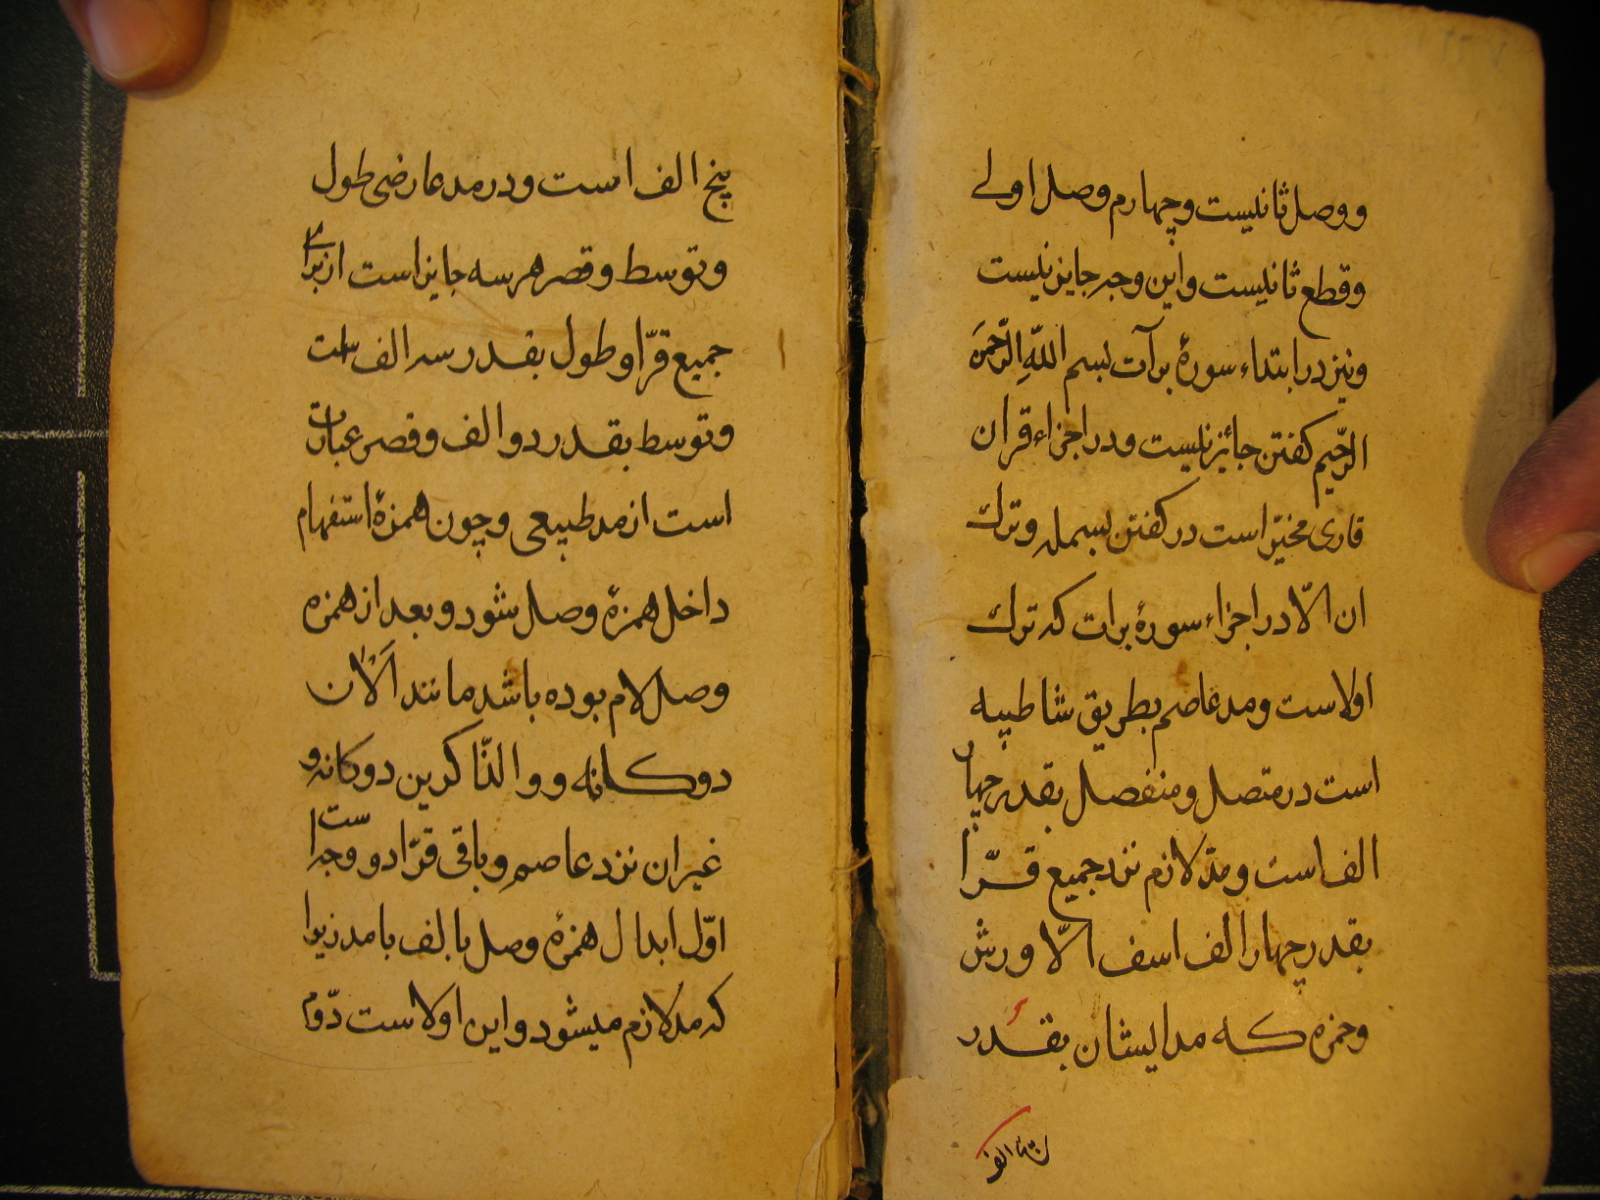 ووصل ثانیست وچهارم وصل اولی
وقطع ثانیست واین وجه جایز نیست
ونیز در ابتداء سورهٔ برآت بسم اللهِ الرّحمنَ
الرّحیم کفتن جائز نیست ودر اجزاء قران
قاری مخیّر است در کفتن بسمله وترك
ان الّا در اجزاء سورهٔ برات که ترك
اولاست ومد عاصم بطریق شاطبیه
است در متصل ومنفصل بقدر چهار
الف است ومدّ لازم نزد جمیع قرّا
بقدر چهار الف اسف الّا ورش
وحمزه که مد ایشان بقدر
پنج الف است ودر مد عارضی طول
وتوسط وقصر هر سه جایز است از برای
جمیع قرّا وطول بقدر سه الف است
وتوسط بقدر دو الف وقصر عبارت
است از مد طبیعی وچون همزهٔ استفهام
داخل همزهٔ وصل شود وبعد از همزه
وصل لام بوده باشد مانند آلآن
دوکانه و والذّاکرین دوکانه و
غیر ان نزد عاصم وباقی قرّا دو وجه است
اوّل ابدال همزهٔ وصل بالف با مد زیرا
که مد لازم میشود واین اولاست دوّم